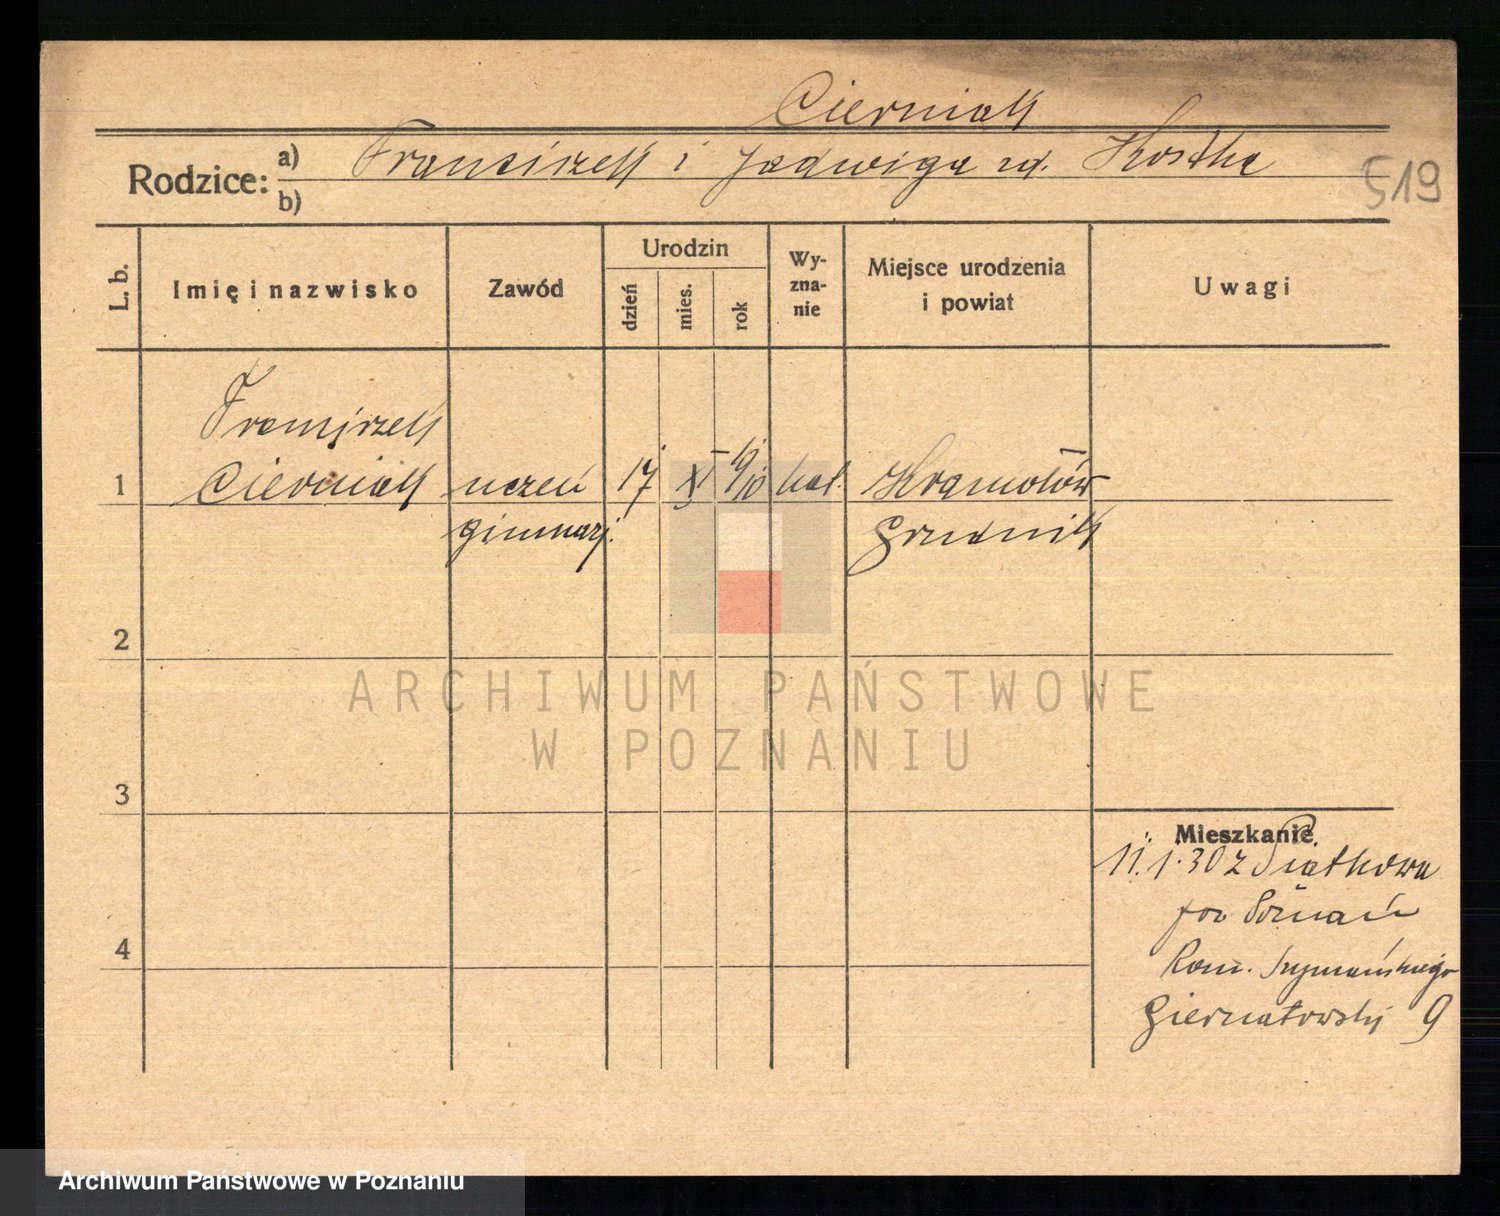 Cierniak
Rodzice: a) Franciszek i Jadwiga zd. Kostka
b)
519
L. b.
Imię i nazwisko
Zawód
Urodzin
dzień
mies.
rok
Wy-
zna-
nie
Miejsce urodzenia
i powiat
Uwagi
Franciszek
1 Cierniak uczeń 17 XI 1910 kat. Kramołów
gimnazj.
2
3
4
Mieszkanie
11.1.30 z Piątkowa
pow Poznań
Rom. Szymańskiego
9
ARCHIWUM PAŃSTWOWE
W POZNANIU
Archiwum Państwowe w Poznaniu